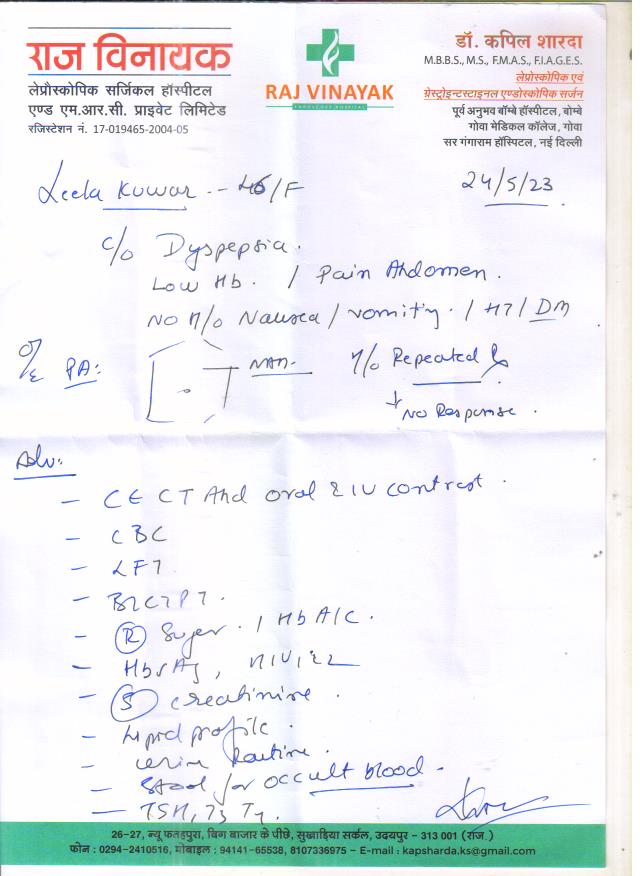 राज विनायक
लेप्रौस्कोपिक सर्जिकल हॉस्पीटल
एण्ड एम.आर.सी. प्राइवेट लिमिटेड
रजिस्टेशन नं. 17-019465-2004-05
RAJ VINAYAK
डॉ. कपिल शारदा
M.B.B.S., M.S., F.M.A.S., F.I.A.G.E.S.
लेप्रोस्कोपिक एवं
ग्रेस्ट्रोइन्टस्टाइनल एण्डोस्कोपिक सर्जन
पूर्व अनुभव बॉम्बे हॉस्पीटल, बोम्बे
गोवा मेडिकल कॉलेज, गोवा
सर गंगाराम हॉस्पिटल, नई दिल्ली
Leela Kuwar - 46/F
24/5/23
c/o Dyspepsia.
Low Hb. / Pain Abdomen.
No H/o Nausea / vomity. / HT / DM
O/E PA:- NAD. H/o Repeated
↓ No Response.
Adv:-
- CECT Abd oral & IV contrast.
- CBC
- LFT.
- BT CT PT.
- (R) Suger. / HbA1C.
- HbsAg, HIV
- (S) creatinine.
- Lipid profile.
- urine Routine.
- Stool for occult blood.
- TSH, T3 T4.
26-27, न्यू फतहपुरा, बिग बाजार के पीछे, सुखाड़िया सर्कल, उदयपुर - 313 001 (राज.)
फोन : 0294-2410516, मोबाइल : 94141-65538, 8107336975 - E-mail : kapsharda.ks@gmail.com